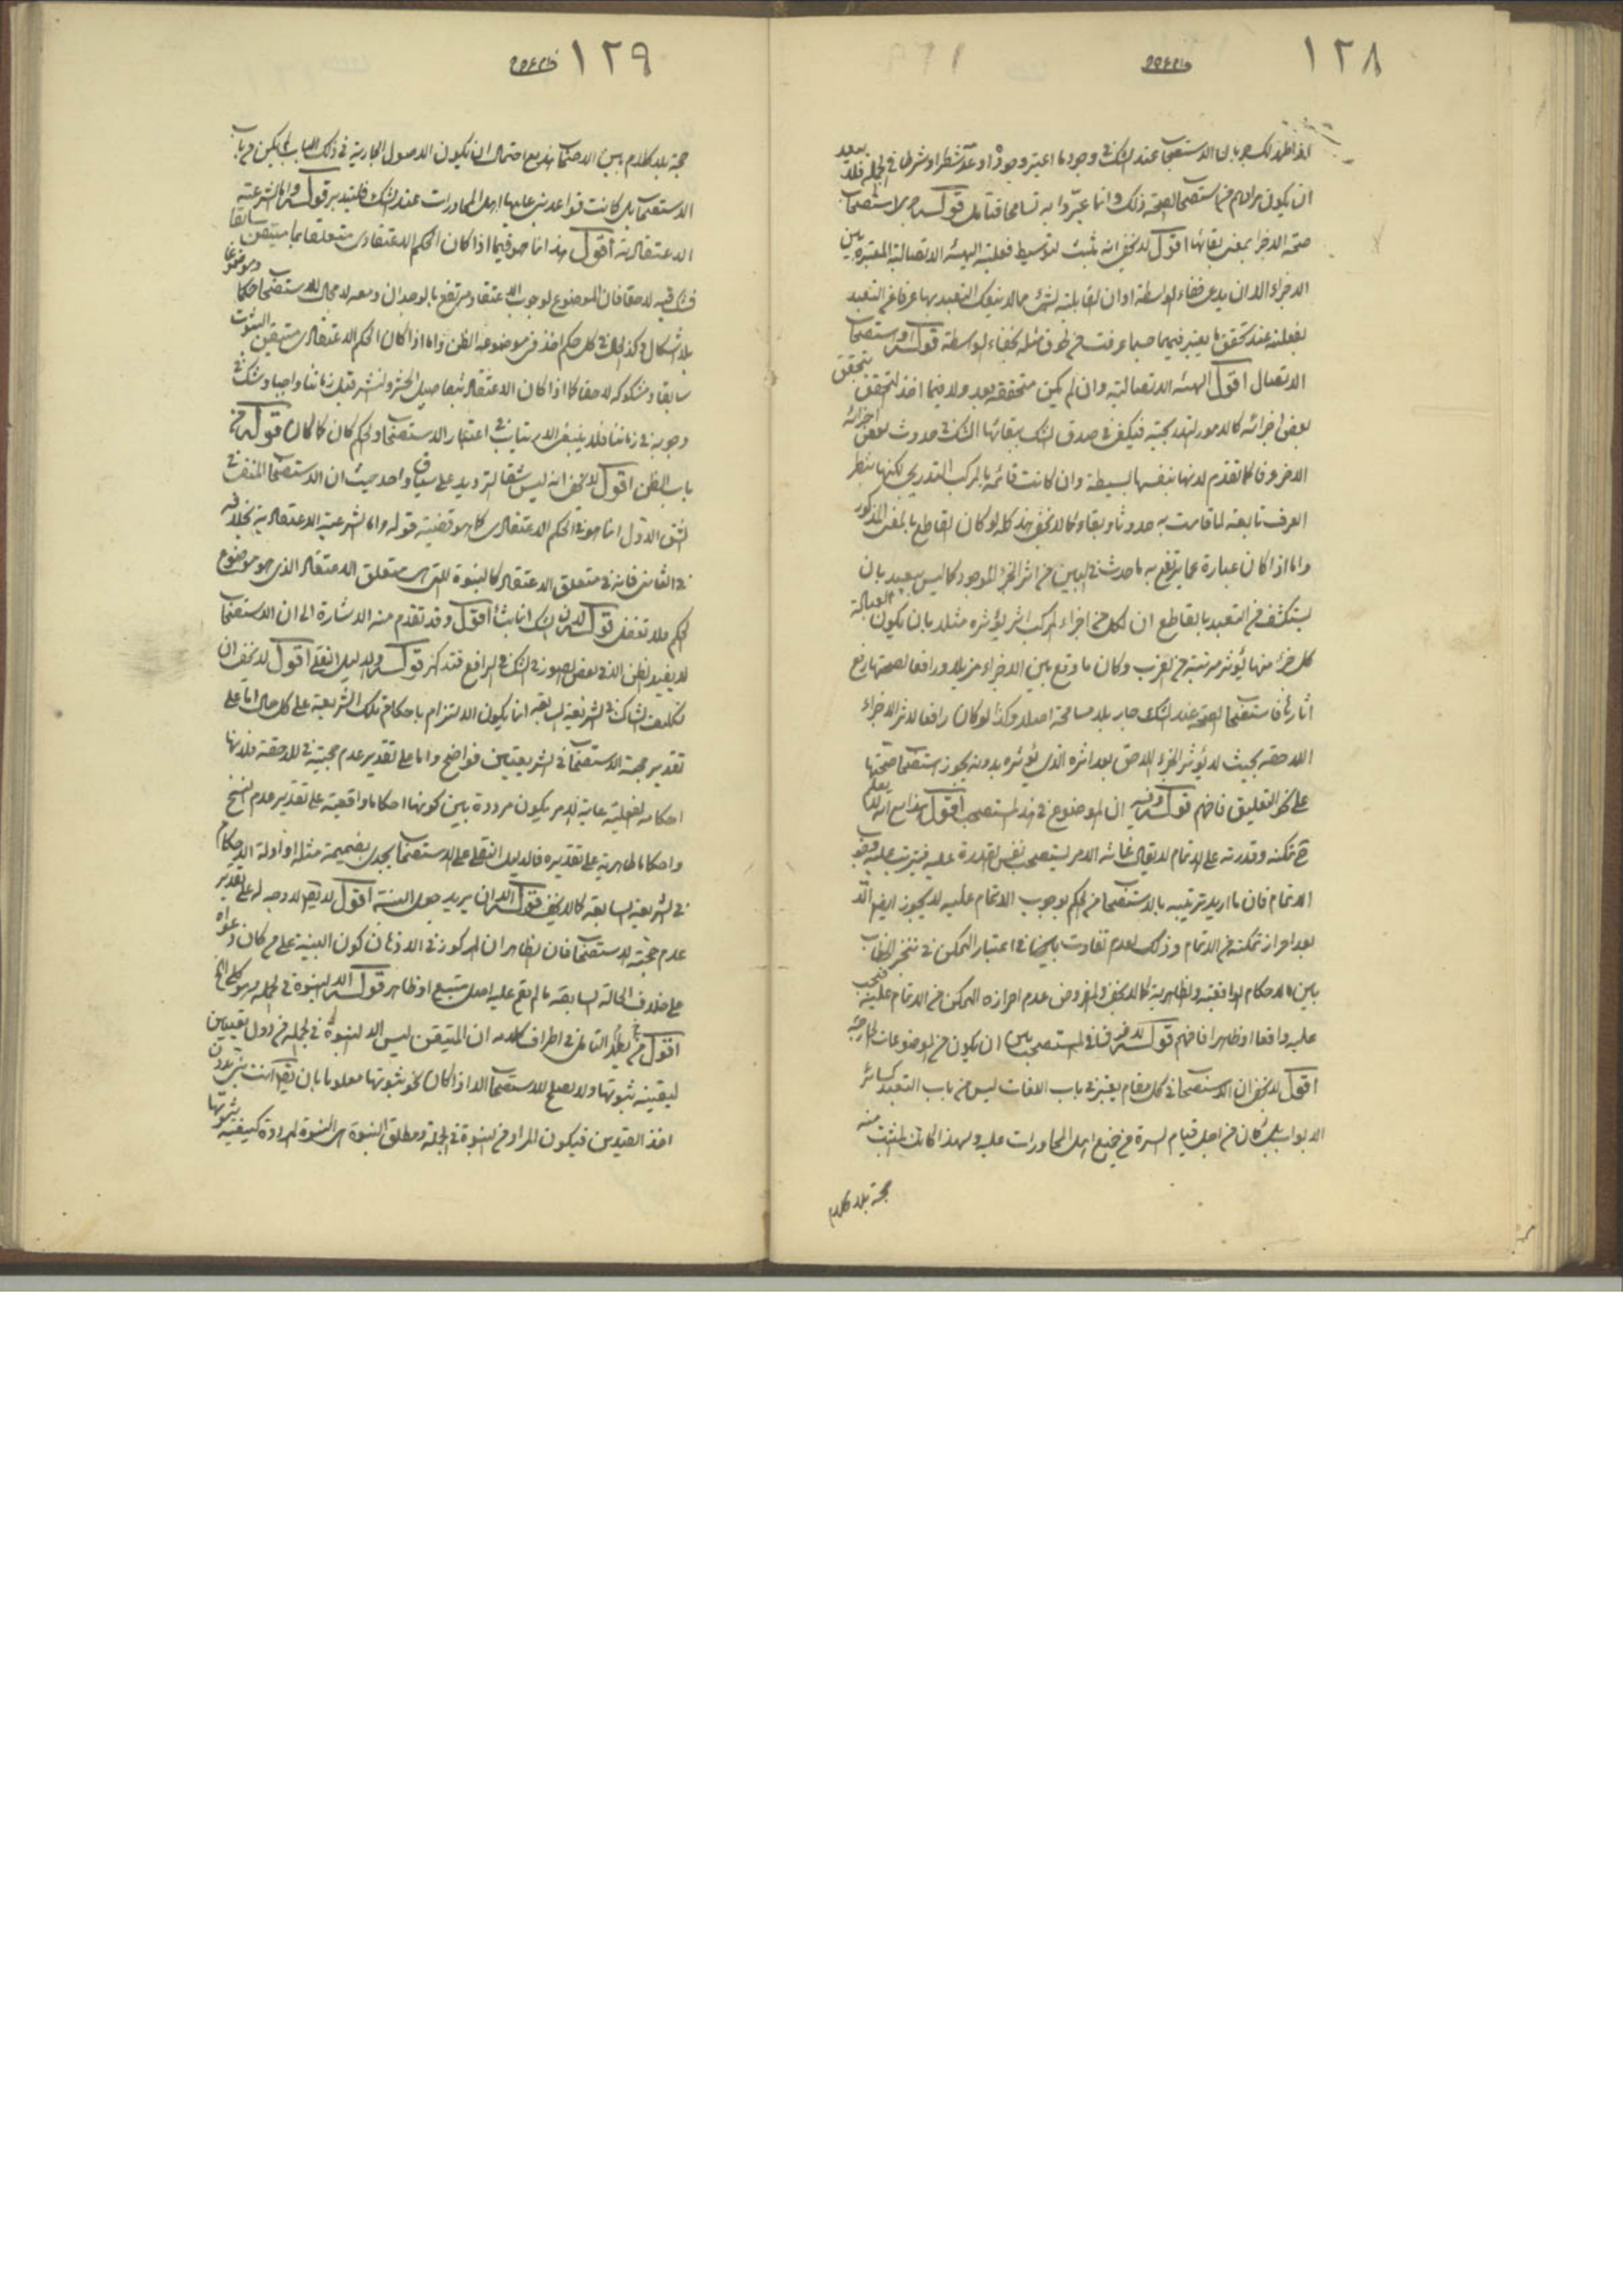 ١٢٨
لذا ظهر لك جريان الاستصحاب عند الشك في وجود ما اعتبر وجوده او عدمه شطرا وشرطا في الجملة فلا يبعد
ان يكون مرادهم من استصحاب الصحة ذلك وانما عبروا به تسامحا فتأمل قوله لاستصحاب
صحة الاجزاء بمعنى بقائها اقول لا يخفى انه مثبت لتوسيط فعلية الهيئة الاتصالية المعتبرة بين
الاجزاء الا ان يدعى خفاء الواسطة او ان القابلية لشئ مما لا ينفك التعبد بها عرفا عن التعبد
بفعليته عند تحقق ما يعتبر فيها حسبما عرفت من طرف مثله كخفاء الواسطة قوله استصحاب
الاتصال اقول الهيئة الاتصالية وان لم يكن متحققة بعد ولا فيما اخذ التحقق بتحقق
بعض اجزائه كالامور التدريجية فيكفى في صدق الشك ببقائها الشك في حدوث بعض اجزائه
الاخر وفاقا لما تقدم لانها بنفسها بسيطة وان كانت قائمة بالمركب التدريجى لكنها بنظر
العرف تابعة لما قامت به حدوثا وبقاء كما لا يخفى هذا كله لو كان القاطع بالمعنى المذكور
واما اذا كان عبارة عما يرتفع به ما حدث في البين من اثر الجزء الموجود كما ليس ببعيد بان
يستكشف من التعبد بالقاطع ان لكل من اجزاء المركب اثر يؤثره مثلا بان يكون
كل جزء منها يؤثر مرتبة من القرب وكان ما وقع بين الاجزاء مزيلا ورافعا لصحتها رفع
آثارها فاستصحاب الصحة عند الشك جار بلا مسامحة اصلا وكذا لو كان رافعا لاثر الاجزاء
اللاحقة بحيث لا يؤثر الجزء اللاحق بعد اثره الذي يؤثره بدونه يجوز استصحاب صحتها
على نحو التعليق فافهم قوله وفيه ان الموضوع في هذا المستصحب اقول هذا مع انه لا يعلم
تمكنه وقدرته على الاتمام لا يقال غاية الامر يستصحب نفس القدرة عليه فيترتب عليه وجوب
الاتمام فان ما اريد ترتيبه بالاستصحاب من الحكم بوجوب الاتمام عليه لا يجوز ايضا الا
بعد احراز تمكنه من الاتمام وذلك لعدم تفاوت بينهما في اعتبار التمكن في تنجز الخطاب
بين الاحكام الواقعية والظاهرية كما لا يخفى والمفروض عدم احرازه التمكن من الاتمام عليه فيجب
عليه واقعا او ظاهرا فافهم قوله لا فرق في المستصحب بين ان يكون من الموضوعات الخارجية
اقول لا يخفى ان الاستصحاب في كل مقام يعتبر في باب اللغات ليس من باب التعبد كسائر
الابواب بل كان من اجل قيام السيرة من جميع اهل المحاورات عليه ولهذا كانت المثبت منه
حجة بلا كلام
١٢٩
حجة بلا كلام بين الاصحاب هذا مع احتمال ان يكون الاصول الجارية في ذلك الباب لم يكن من باب
الاستصحاب بل كانت قواعد بنى عليها اهل المحاورات عند الشك فليتدبر قوله واما الشرعية
الاعتقادية اقول هذا انما هو فيما اذا كان الحكم الاعتقادى متعلقا بما متيقن سابقا
فشك فيه لاحقا فان الموضوع لوجوب الاعتقاد مرتفع بالوجدان ومعه لا مجال للاستصحاب حكما وموضوعا
بلا اشكال وكذلك في كل حكم اخذ في موضوعه الظن واما اذا كان الحكم الاعتقادى متيقن الثبوت
سابقا ومشكوكه لاحقا كما اذا كان الاعتقاد بتفاصيل الحشر والنشر قبل زماننا واجبا وشك في
وجوبه في زماننا فلا ينبغى الارتياب في اعتبار الاستصحاب والحكم كان كما كان قوله من
باب الظن اقول لا يخفى انه ليس شقا الترديد على سياق واحد حيث ان الاستصحاب المنفى في
الشق الاول انما هو في الحكم الاعتقادى كما هو قضية قوله واما الشرعية الاعتقادية بخلافه
في الثانى فانه في متعلق الاعتقاد كالنبوة التى هى متعلق الاعتقاد الذى هو موضوع
الحكم فلا تغفل قوله لان الشك انما ينشأ اقول وقد تقدم منه الاشارة الى ان الاستصحاب
لا يفيد الظن الا في بعض الصور في الشك في الرافع فتذكر قوله والدليل النقلى اقول لا يخفى ان
تكليف الشاك في الشريعة السابقة انما يكون الالتزام باحكام تلك الشريعة على كل حال اما على
تقدير حجية الاستصحاب في الشريعتين فواضح واما على تقدير عدم حجيته في اللاحقة فلانها
احكامه الفعلية غاية الامر يكون مرددة بين كونها احكاما واقعية على تقدير عدم النسخ
واحكاما ظاهرية على تقديره فالدليل النقلى على الاستصحاب يجدى بضميمة مثله او ادلة الاحكام
في الشريعة السابقة كما لا يخفى قوله الا ان يريد جعل البينة اقول لا يقال لا وجه له على تقدير
عدم حجية الاستصحاب فان الظاهر ان المركوز في الاذهان كون البينة على من كان دعواه
على خلاف الحالة السابقة ما لم تقع عليه اصل متبع او ظاهر قوله الا النبوة في الجملة وهو كلى الخ
اقول يظهر التأمل في اطراف كلامه ان المتيقن ليس الا النبوة في الجملة من دون تعيين
ليقينه ثبوتها ولا يصلح للاستصحاب الا اذا كان نحو ثبوتها معلوما بان يقال انت بنى بدون
اخذ القيدين فيكون المراد من النبوة في الجملة ومطلق النبوة هى النبوة المرددة كيفية ثبوتها